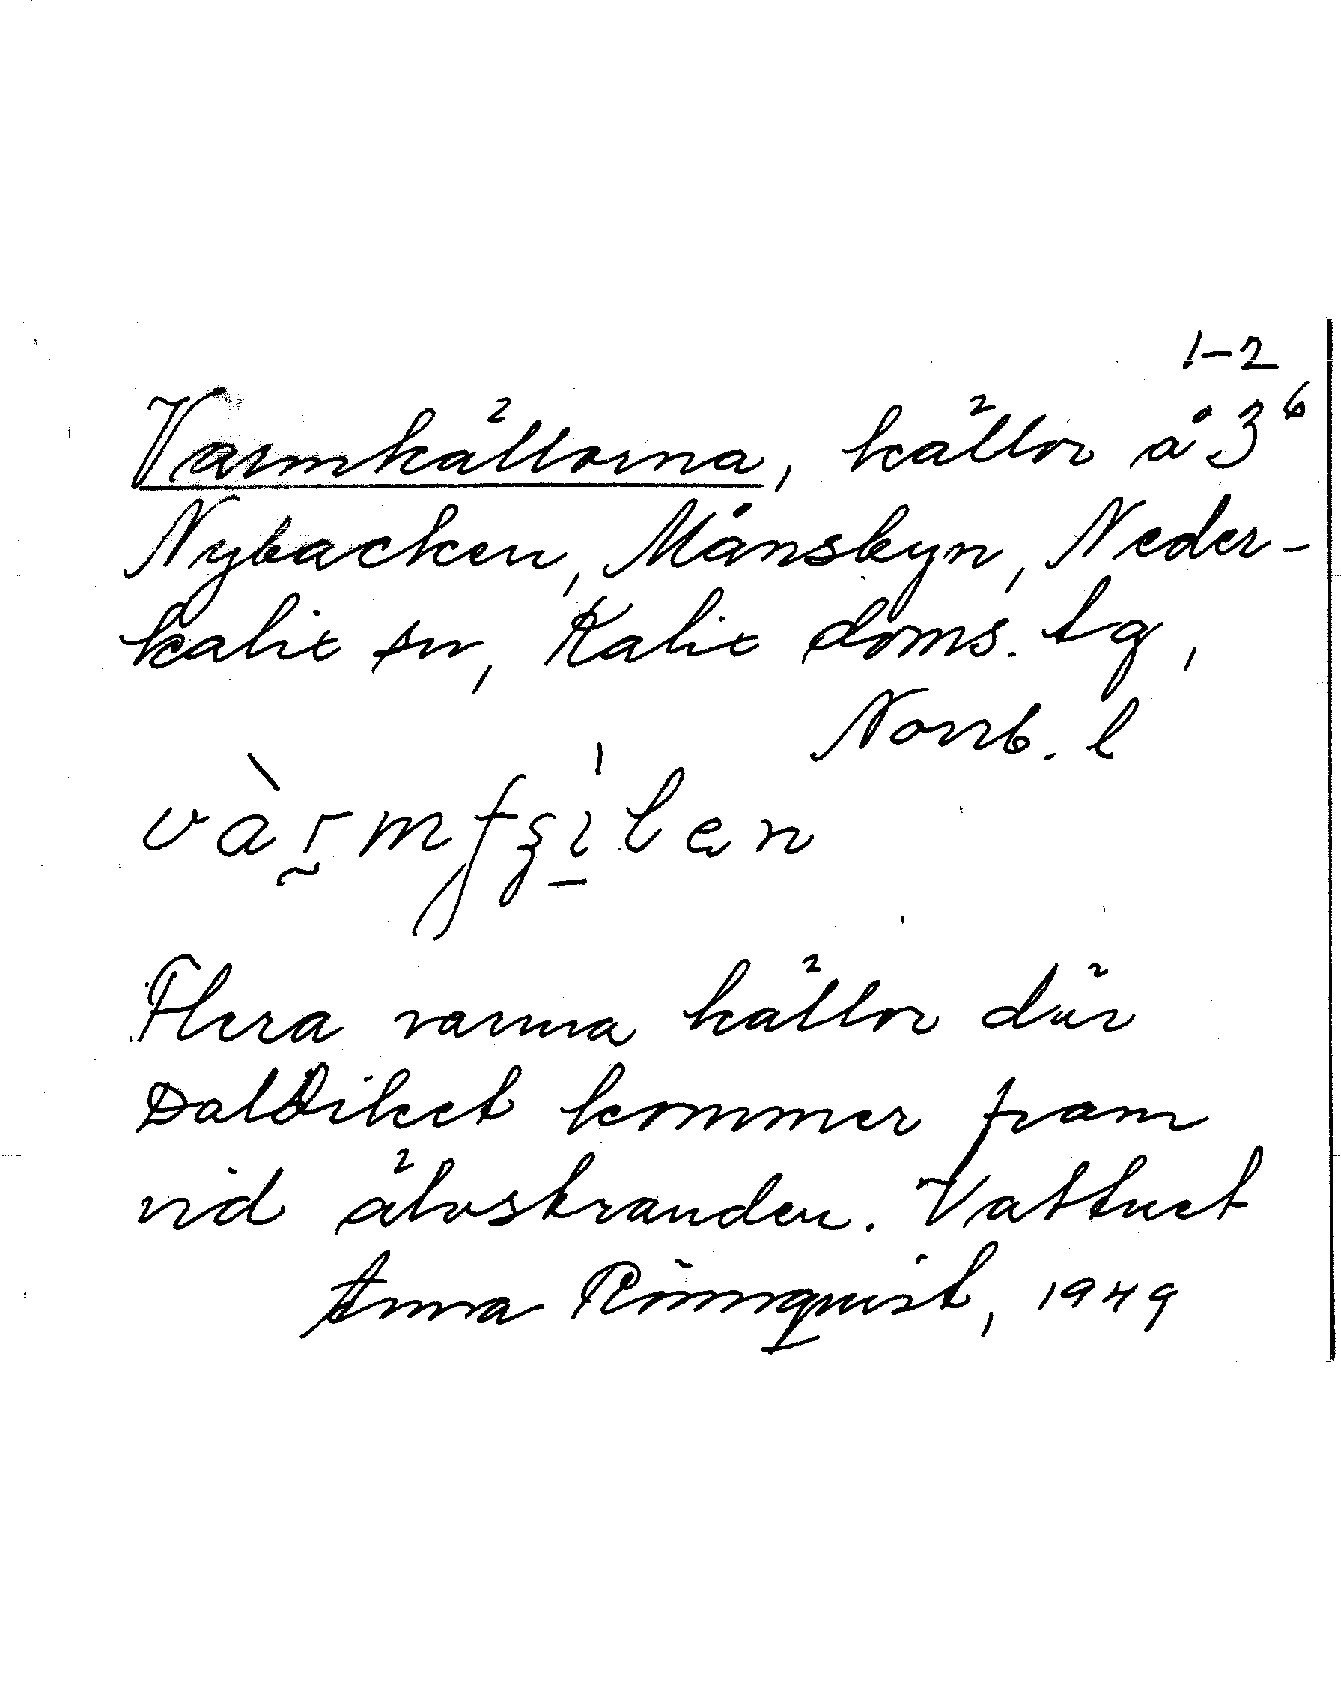 1-2
Varmkällorna, källor å 3⁶
Nybacken, Månsbyn, Neder-
kalix sn, Kalix doms. tg,
Norrb. l
Flera varma källor där
Daldiket kommer fram
vid älvstranden. Vattnet
Anna Rönnquist, 1949